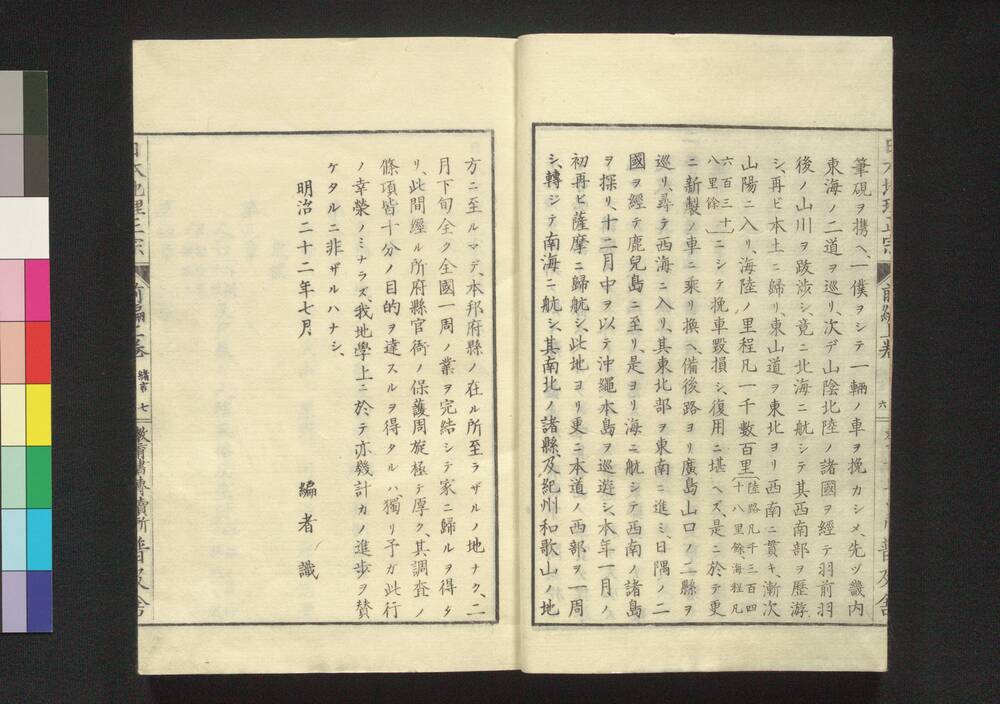 筆硯ヲ携ヘ、一僕ヲシテ一輛ノ車ヲ挽カシメ、先ヅ畿内
東海ノ二道ヲ巡リ、次デ山陰北陸ノ諸國ヲ經テ羽前羽
後ノ山川ヲ跋渉シ、竟ニ北海ニ航シテ其西南部ヲ歴游
シ、再ビ本土ニ歸リ、東山道ヲ東北ヨリ西南ニ貫キ、漸次
山陽ニ入リ海陸ノ里程凡一千數百里(陸路凡千三百四十八里餘、海程凡
六百三十八里餘)ニシテ挽車毀損シ、復用ニ堪ヘズ、是ニ於テ更
ニ新製ノ車ニ乘リ換ヘ、備後路ヨリ廣島山口ノ二縣ヲ
巡リ、尋テ西海ニ入リ、其東北部ヲ東南ニ進ミ、日隅ノ二
國ヲ經テ鹿兒島ニ至リ是ヨリ海ニ航シテ西南ノ諸島
ヲ探リ、十二月中ヲ以テ沖繩本島ヲ巡遊シ、本年一月ノ
初再ビ薩摩ニ歸航シ、此地ヨリ更ニ本道ノ西部ヲ一周
シ、轉ジテ南海ニ航シ、其南北ノ諸縣、及紀州和歌山ノ地
方ニ至ルマデ、本邦府縣ノ在ル所至ラザルノ地ナク、二
月下旬全ク全國一周ノ業ヲ完結シテ家ニ歸ルヲ得タ
リ、此間經ル所府縣官衙ノ保護周旋極テ厚ク、其調査ノ
條項皆十分ノ目的ヲ達スルヲ得タルハ、獨リ予ガ此行
ノ幸榮ノミナラズ、我地學上ニ於テ亦幾計カノ進歩ヲ賛
ケタルニ非ザルハナシ、
明治二十二年七月
編者識
日本地理正宗
前編上卷
緒言
七
敎育書專賣所普及舍